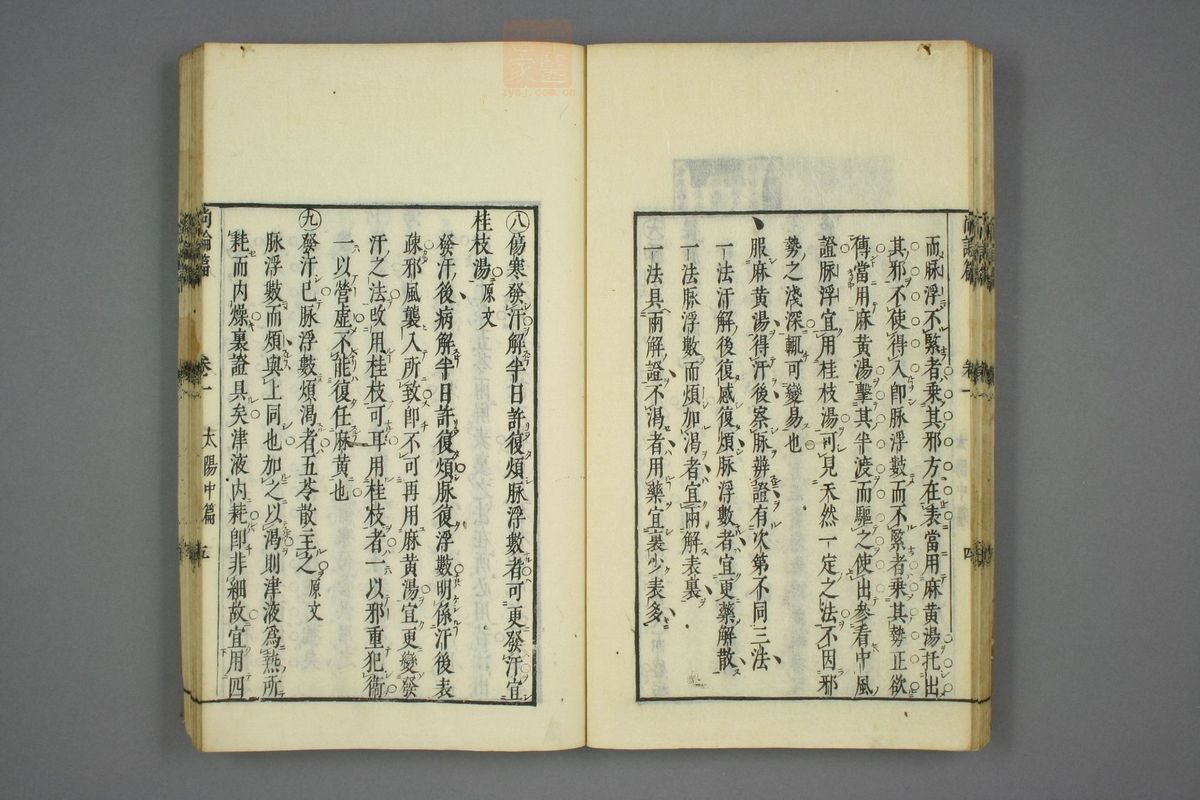 尚論篇 卷一 太陽中篇 四
而脉浮不緊者乘其邪方在表當用麻黃湯托出
其邪不使得入卽脉浮數而不緊者乘其勢正欲
傳當用麻黃湯擊其半渡而驅之使出參看中風
證脉浮宜用桂枝湯可見天然一定之法不因邪
勢之淺深輒可變易也
服麻黃湯得汗後察脉辨證有次第不同三法
一法汗解後復感復煩脉浮數者宜更藥解散
一法脉浮數而煩加渴者宜兩解表裏
一法具兩解證不渴者用藥宜裏少表多
㊇傷寒發汗解半日許復煩脉浮數者可更發汗宜
桂枝湯原文
發汗後病解半日許復煩脉復浮數明係汗後表
疎邪風襲入所致卽不可再用麻黃湯宜更變發
汗之法改用桂枝可耳用桂枝者一以邪重犯衛
一以營虛不能復任麻黃也
㊈發汗已脉浮數煩渴者五苓散主之原文
脉浮數而煩與上同也加之以渴則津液爲熱所
耗而內燥裏證具矣津液內耗卽非細故宜用四
尚論篇 卷一 太陽中篇 五